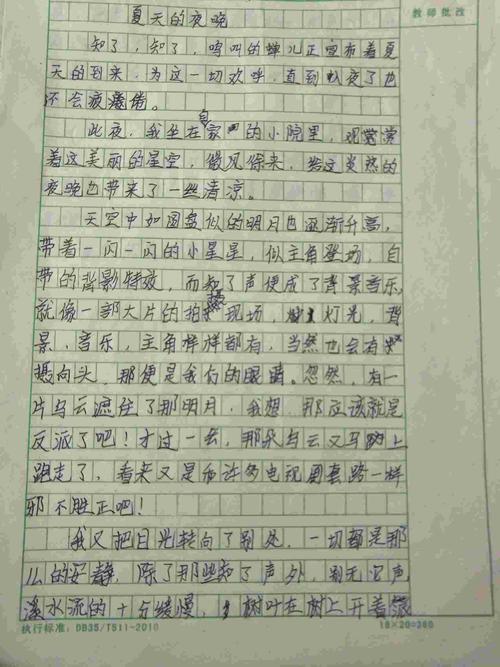 教师批改
夏天的夜晚
知了，知了，鸣叫的蝉儿正宣布着夏
天的到来，为这一切欢呼，直到入夜了也
还会疲惫倦。
此夜，我坐在自家的小院里，观赏
着这美丽的星空，微风徐来，给这炎热的
夜晚也带来了一丝清凉。
天空中如圆盘似的明月也逐渐升高，
带着一闪一闪的小星星，似主角登场，自
带的背影特效，而知了声便成了背景音乐，
就像一部大片的拍摄现场，灯光，背
景，音乐，主角样样都有，当然也会有
摄向头，那便是我们的眼睛。忽然，有一
片乌云遮住了那明月，我想，那应该就是
反派了吧！才过一会，那朵乌云又马上
跑走了，看来又是和许多电视剧套路一样
邪不胜正吧！
我又把目光转向了别处，一切都是那
么的安静，除了那些知了声外，别无它声
溪水流的十分缓慢，树叶在树上开着
执行标准：DB35/T511-2010
18×20=360